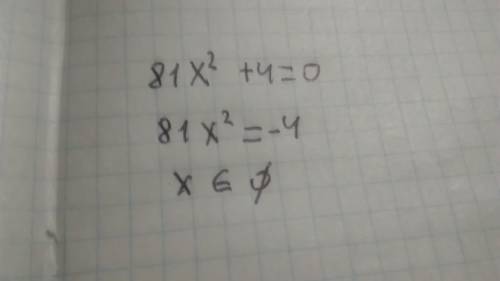 81x² +4=0
81x²=-4
x ∈ ∅